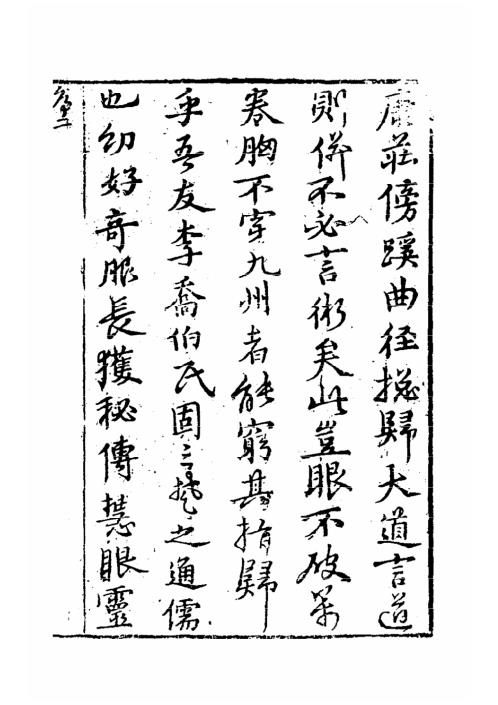 康莊傍蹊曲径揔歸大道言道
則併不必言術矣此豈眼不破萬
卷胸不穿九州者能窮其指歸
乎吾友李喬伯氏固三楚之通儒
也幼好奇服長獲秘傳慧眼靈
序二